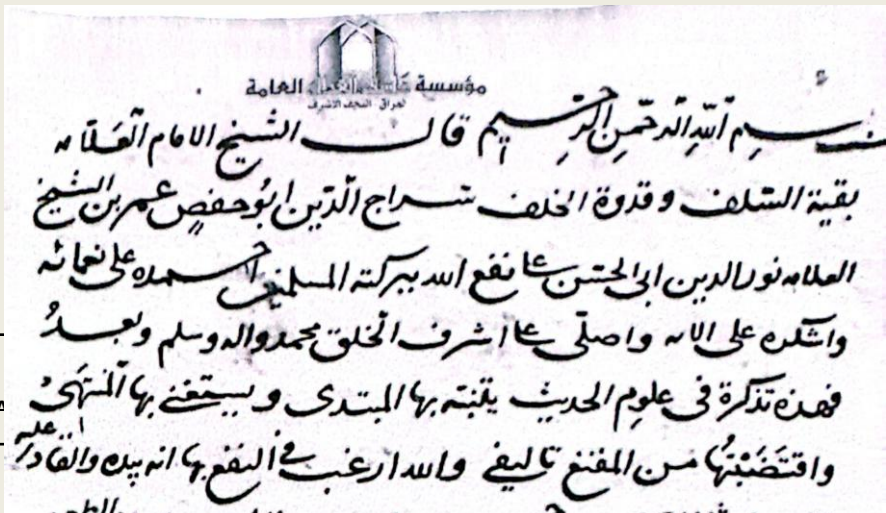 مؤسسة كاشف الغطاء العامة
العراق النجف الاشرف
بسم الله الرحمن الرحيم قال الشيخ الامام العلامه
بقية السلف وقدوة الخلف سراج الدين ابو حفص عمر بن الشيخ
العلامه نور الدين ابى الحسن على نفع الله ببركته المسلمين احمده على نعمائه
واشكره على الائه واصلى على اشرف الخلق محمد واله وسلم وبعد
فهذه تذكرة فى علوم الحديث يتنبه بها المبتدى ويستغنى بها المنتهى
واقتضبتها من المقنع تاليفى والله ارغب فى النفع بها انه بيده والقادر عليه